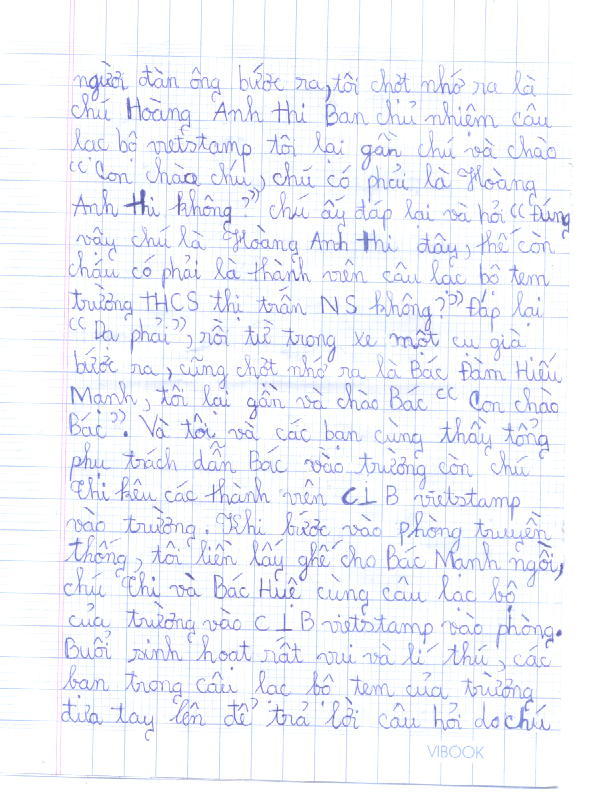 người đàn ông bước ra, tôi chợt nhớ ra là
chú Hoàng Anh Thi Ban chủ nhiệm câu
lạc bộ vietstamp tôi lại gần chú và chào
“Con chào chú, chú có phải là Hoàng
Anh thi không?” chú ấy đáp lại và hỏi “Đúng
vậy chú là Hoàng Anh thi đây, thế còn
cháu có phải là thành viên câu lạc bộ tem
trường THCS thị trấn NS không?” Đáp lại
“Dạ phải”, rồi từ trong xe một cụ già
bước ra, cũng chợt nhớ ra là Bác Đàm Hiếu
Mạnh, tôi lại gần và chào Bác “Con chào
Bác”. Và tôi và các bạn cùng thầy tổng
phụ trách dẫn Bác vào trường còn chú
Thi kêu các thành viên CLB vietstamp
vào trường. Khi bước vào phòng truyền
thống, tôi liền lấy ghế cho Bác Mạnh ngồi,
chú Thi và Bác Huê cùng câu lạc bộ
của trường vào CLB vietstamp vào phòng.
Buổi sinh hoạt rất vui và lí thú, các
bạn trong câu lạc bộ tem của trường
đưa tay lên để trả lời câu hỏi do chú
VIBOOK